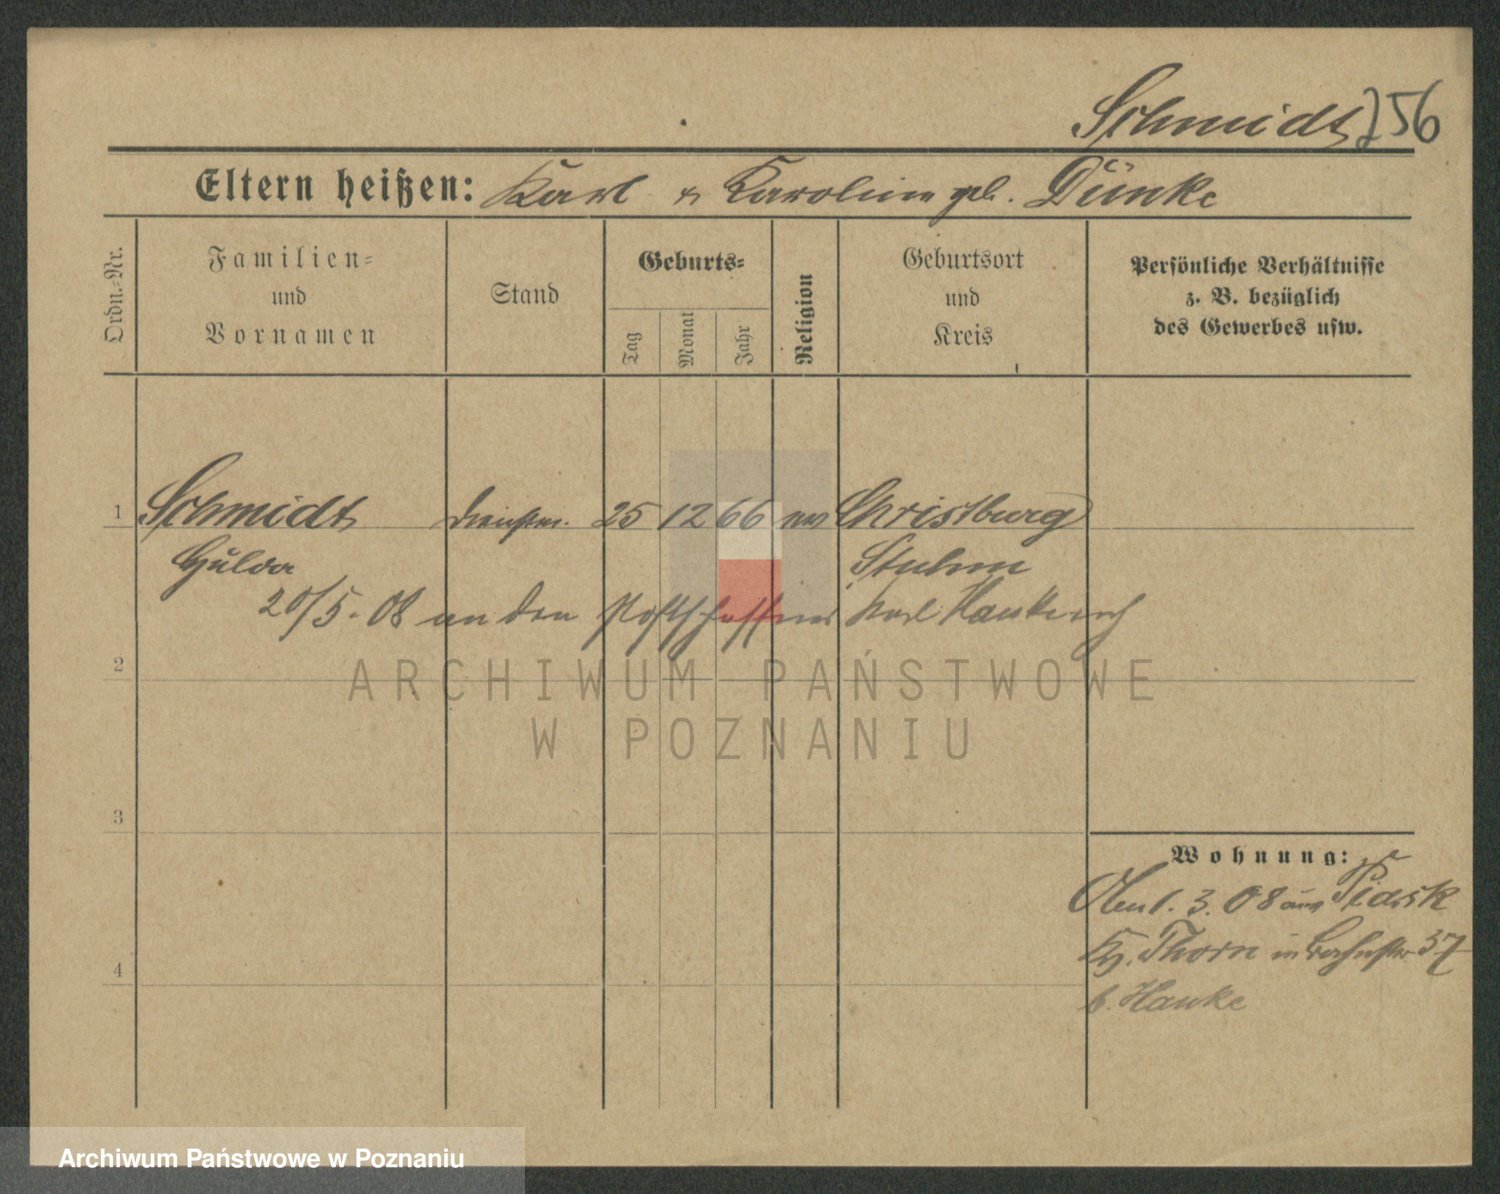 Schmidt 756
Eltern heißen: Karl & Karoline geb. Dünke
Ordn.-Nr.
Familien-
und
Vornamen
Stand
Geburts-
Tag
Monat
Jahr
Religion
Geburtsort
und
Kreis
Persönliche Verhältnisse
z. B. bezüglich
des Gewerbes usw.
1 Schmidt 25 12 66 Christburg
Hulda Stuhm
20/5. 08 an den Postschaffner Karl
2
ARCHIWUM PAŃSTWOWE
W POZNANIU
3
Wohnung:
1. 3. 08 aus
4 Thorn in 37
b. Hanke
Archiwum Państwowe w Poznaniu